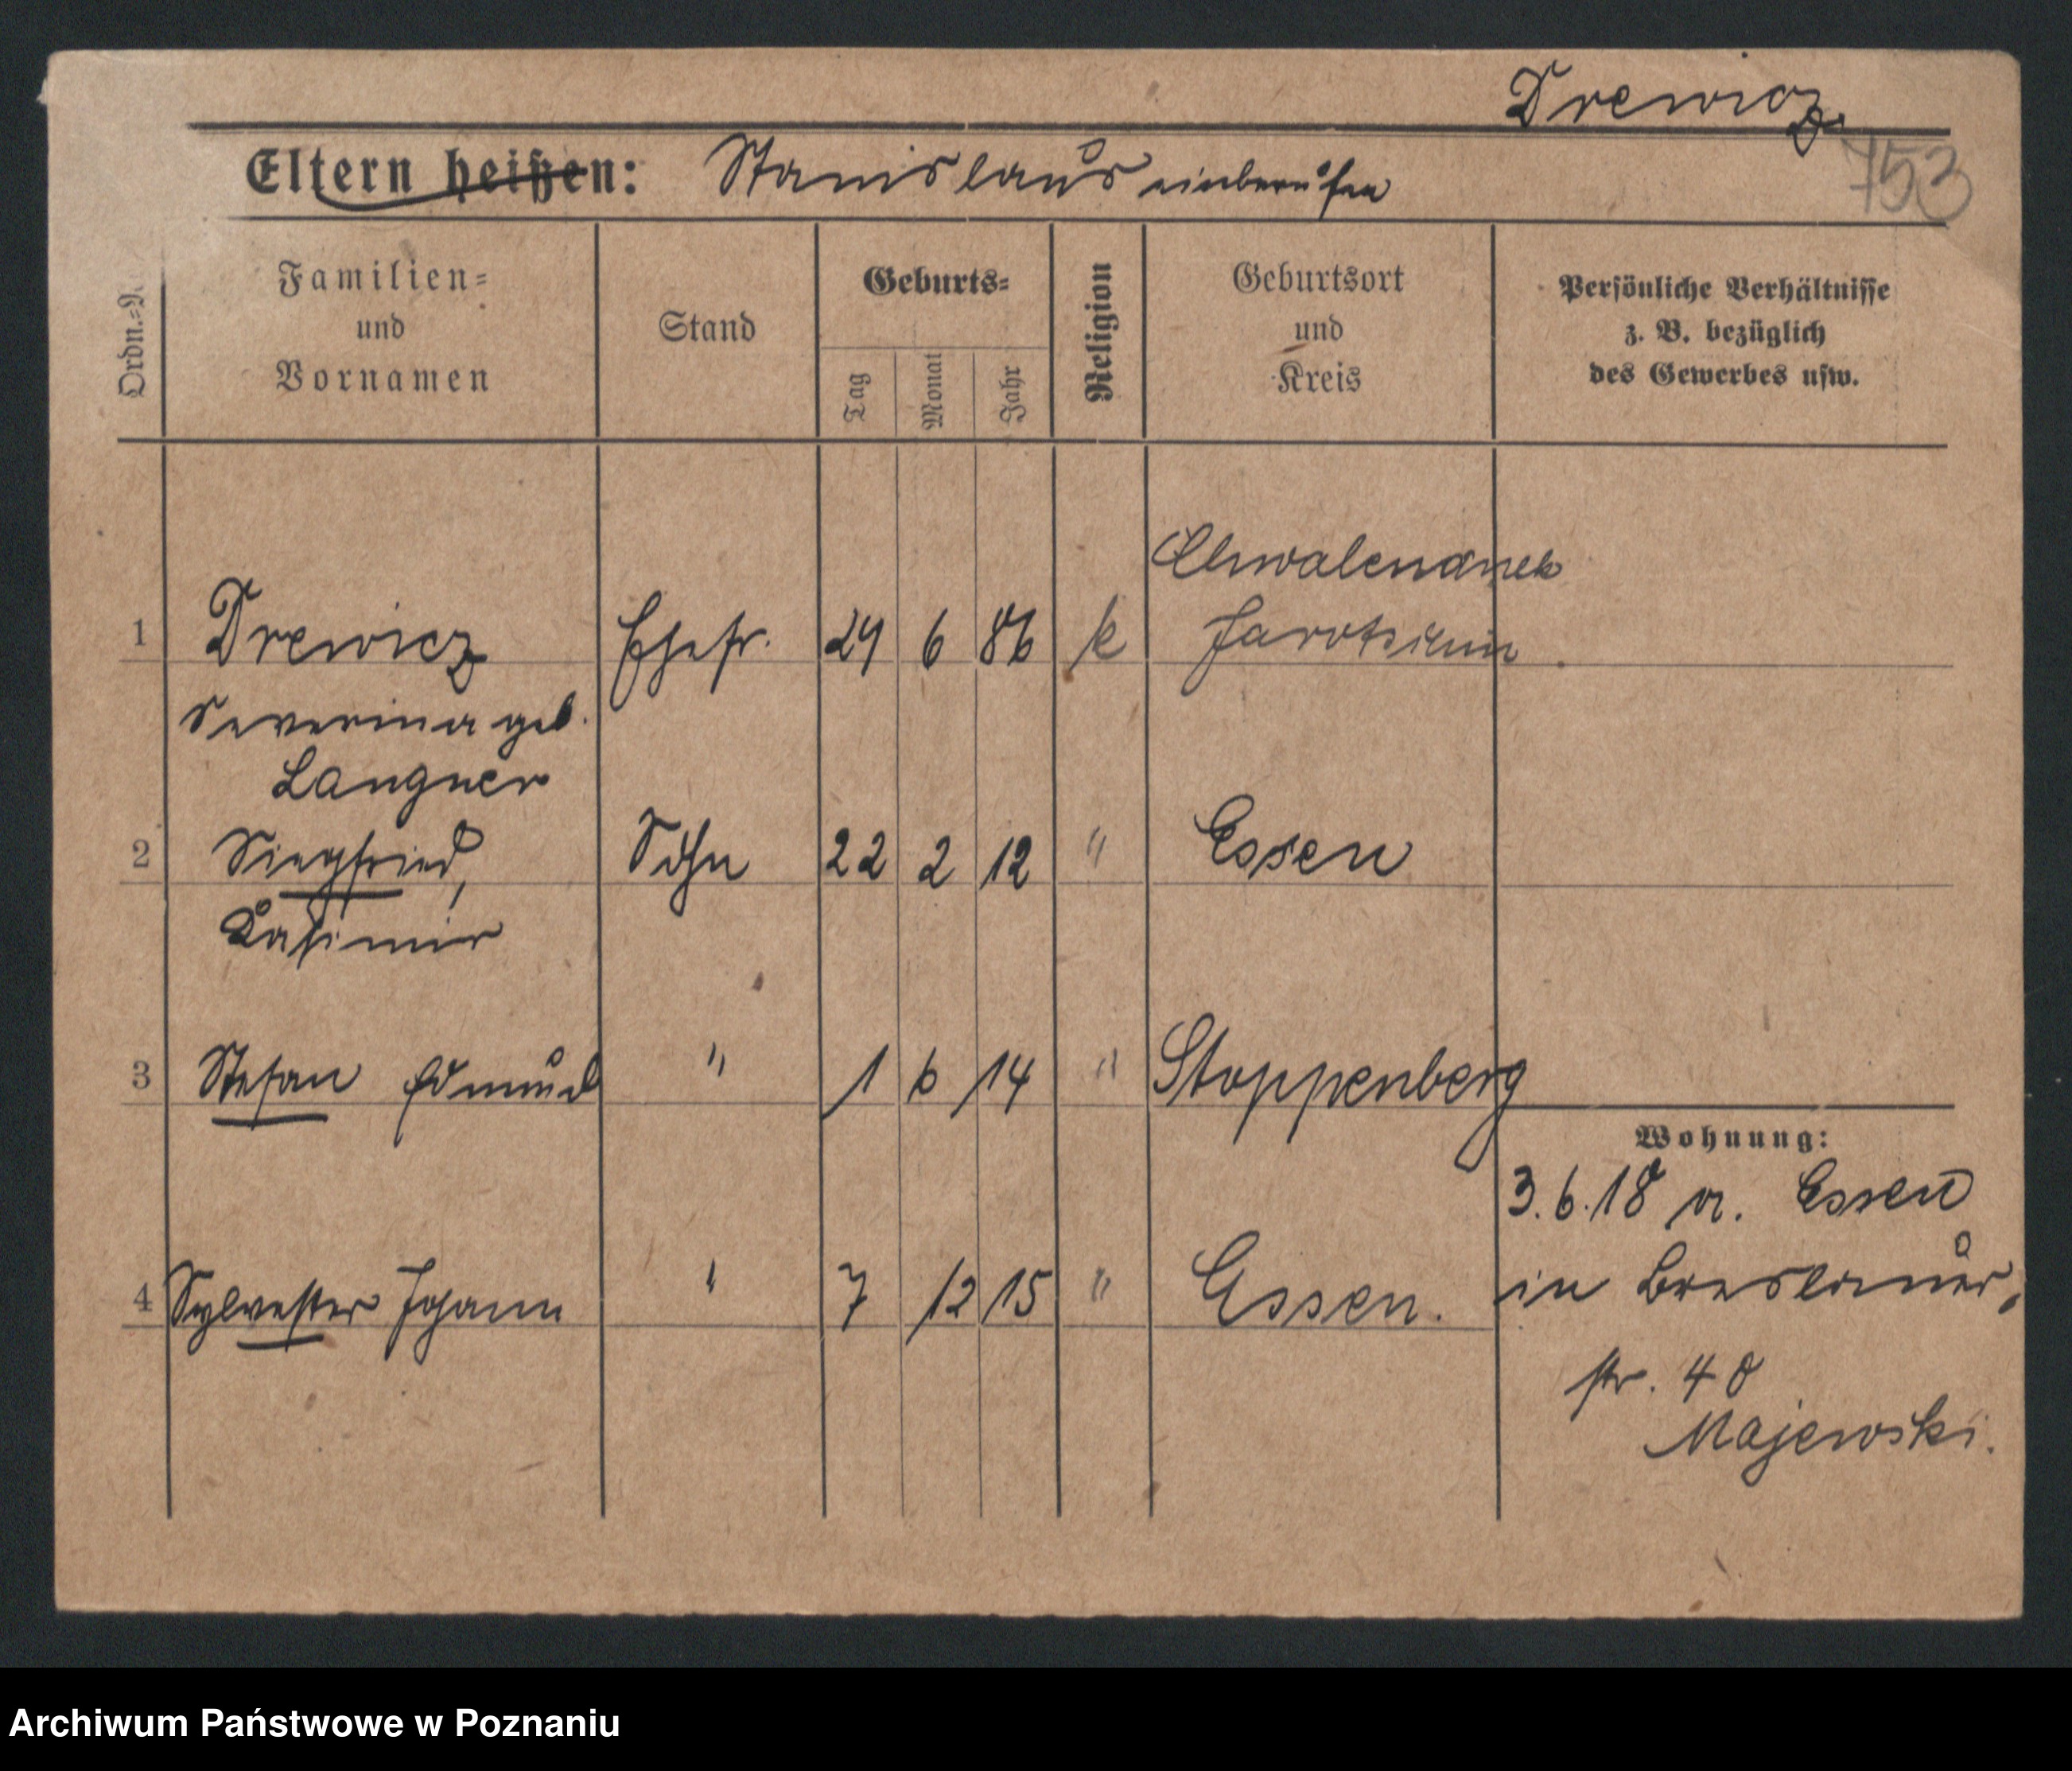 Drewicz
753
Eltern heißen: Stanislaus einberufen
Ordn.-N
Familien-
und
Vornamen
Stand
Geburts-
Tag
Monat
Jahr
Religion
Geburtsort
und
Kreis
Persönliche Verhältnisse
z. B. bezüglich
des Gewerbes usw.
Chwalencinek
1 Drewicz Ehefr. 24 6 86 k Jarotschin
Severina geb.
Langner
2 Siegfried, Sohn 22 2 12 " Essen
Kasimir
3 Stefan Edmund " 1 6 14 " Stoppenberg
Wohnung:
3.6.18 v. Essen
4 Sylvester Johann " 7 12 15 " Essen.
in Breslauer,
str. 48
Majewski.
Archiwum Państwowe w Poznaniu